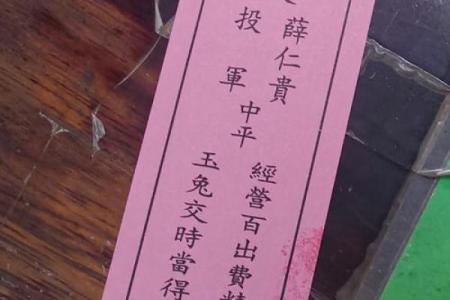 薛仁貴
投軍
中平
經營百出費精
玉兔交時當得